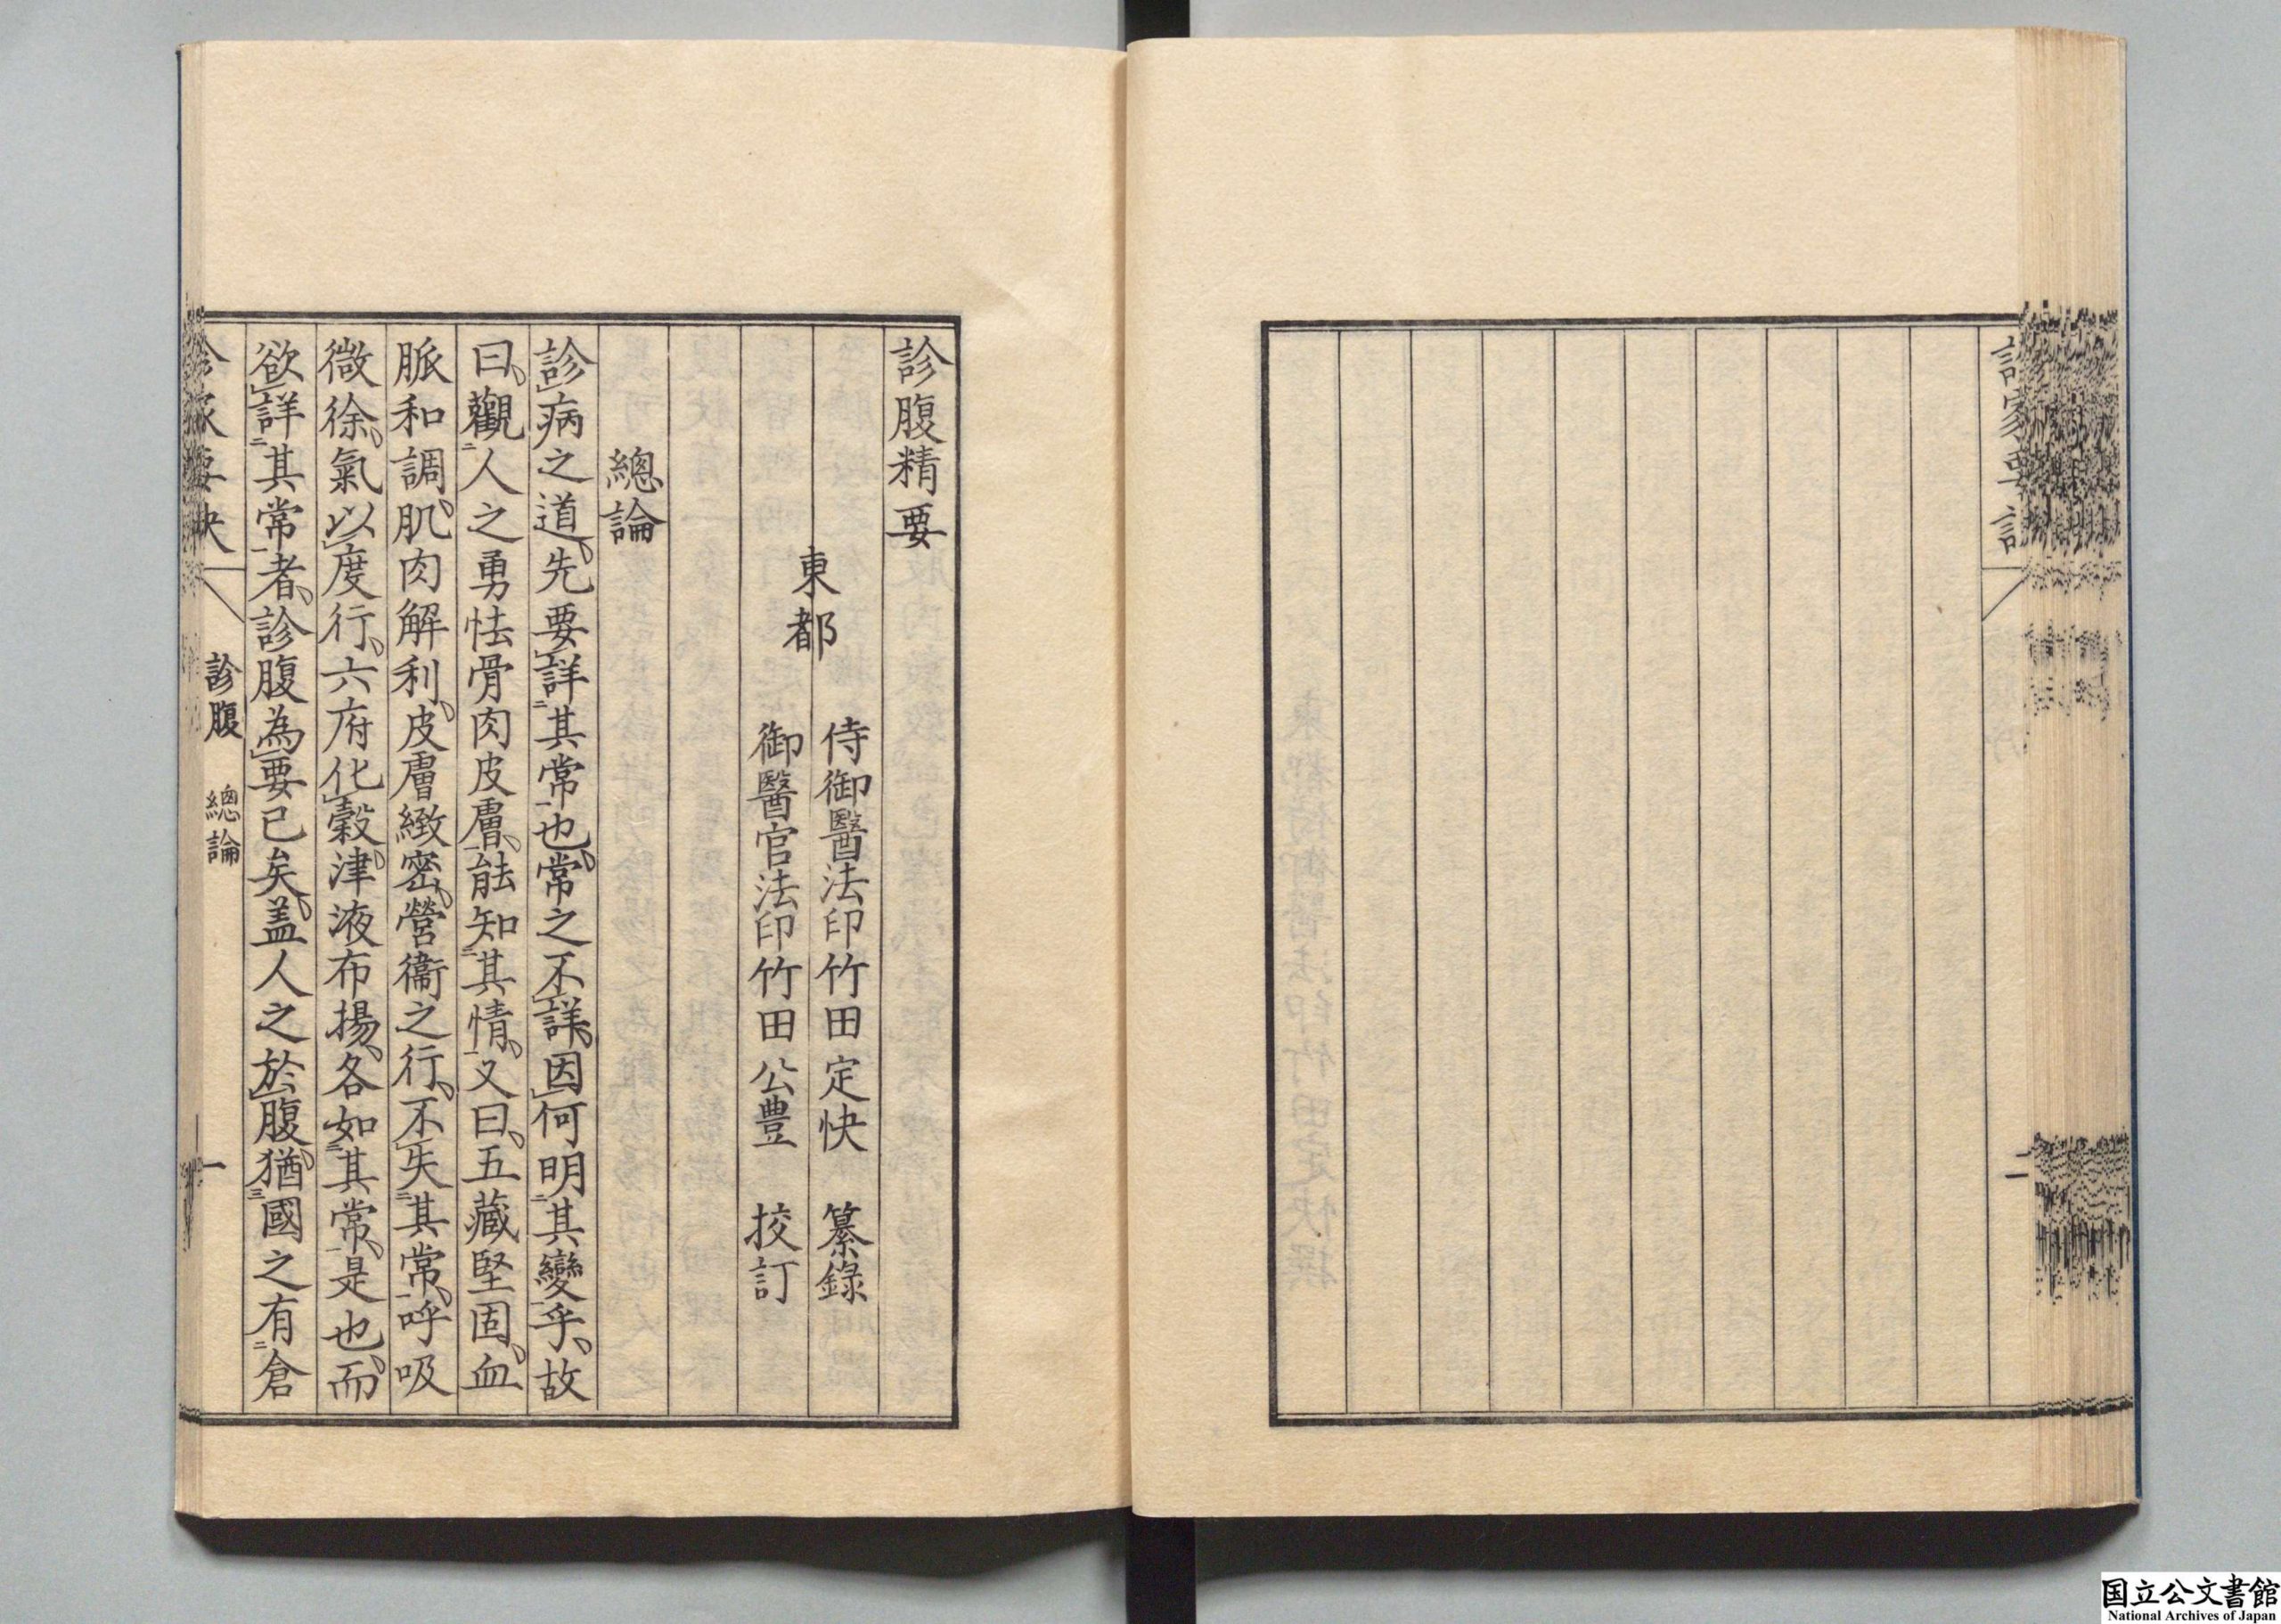 二
診腹精要
東都
侍御醫法印竹田定快 纂錄
御醫官法印竹田公豊 挍訂
總論
診病之道、先要詳其常也、常之不詳、因何明其變乎、故
曰、觀人之勇怯骨肉皮膚、能知其情、又曰、五藏堅固、血
脈和調、肌肉解利、皮膚緻密、營衞之行、不失其常、呼吸
微徐、氣以度行、六府化穀、津液布揚、各如其常、是也、而
欲詳其常者、診腹為要已矣、蓋人之於腹、猶國之有倉
診腹 總論
一
国立公文書館
National Archives of Japan